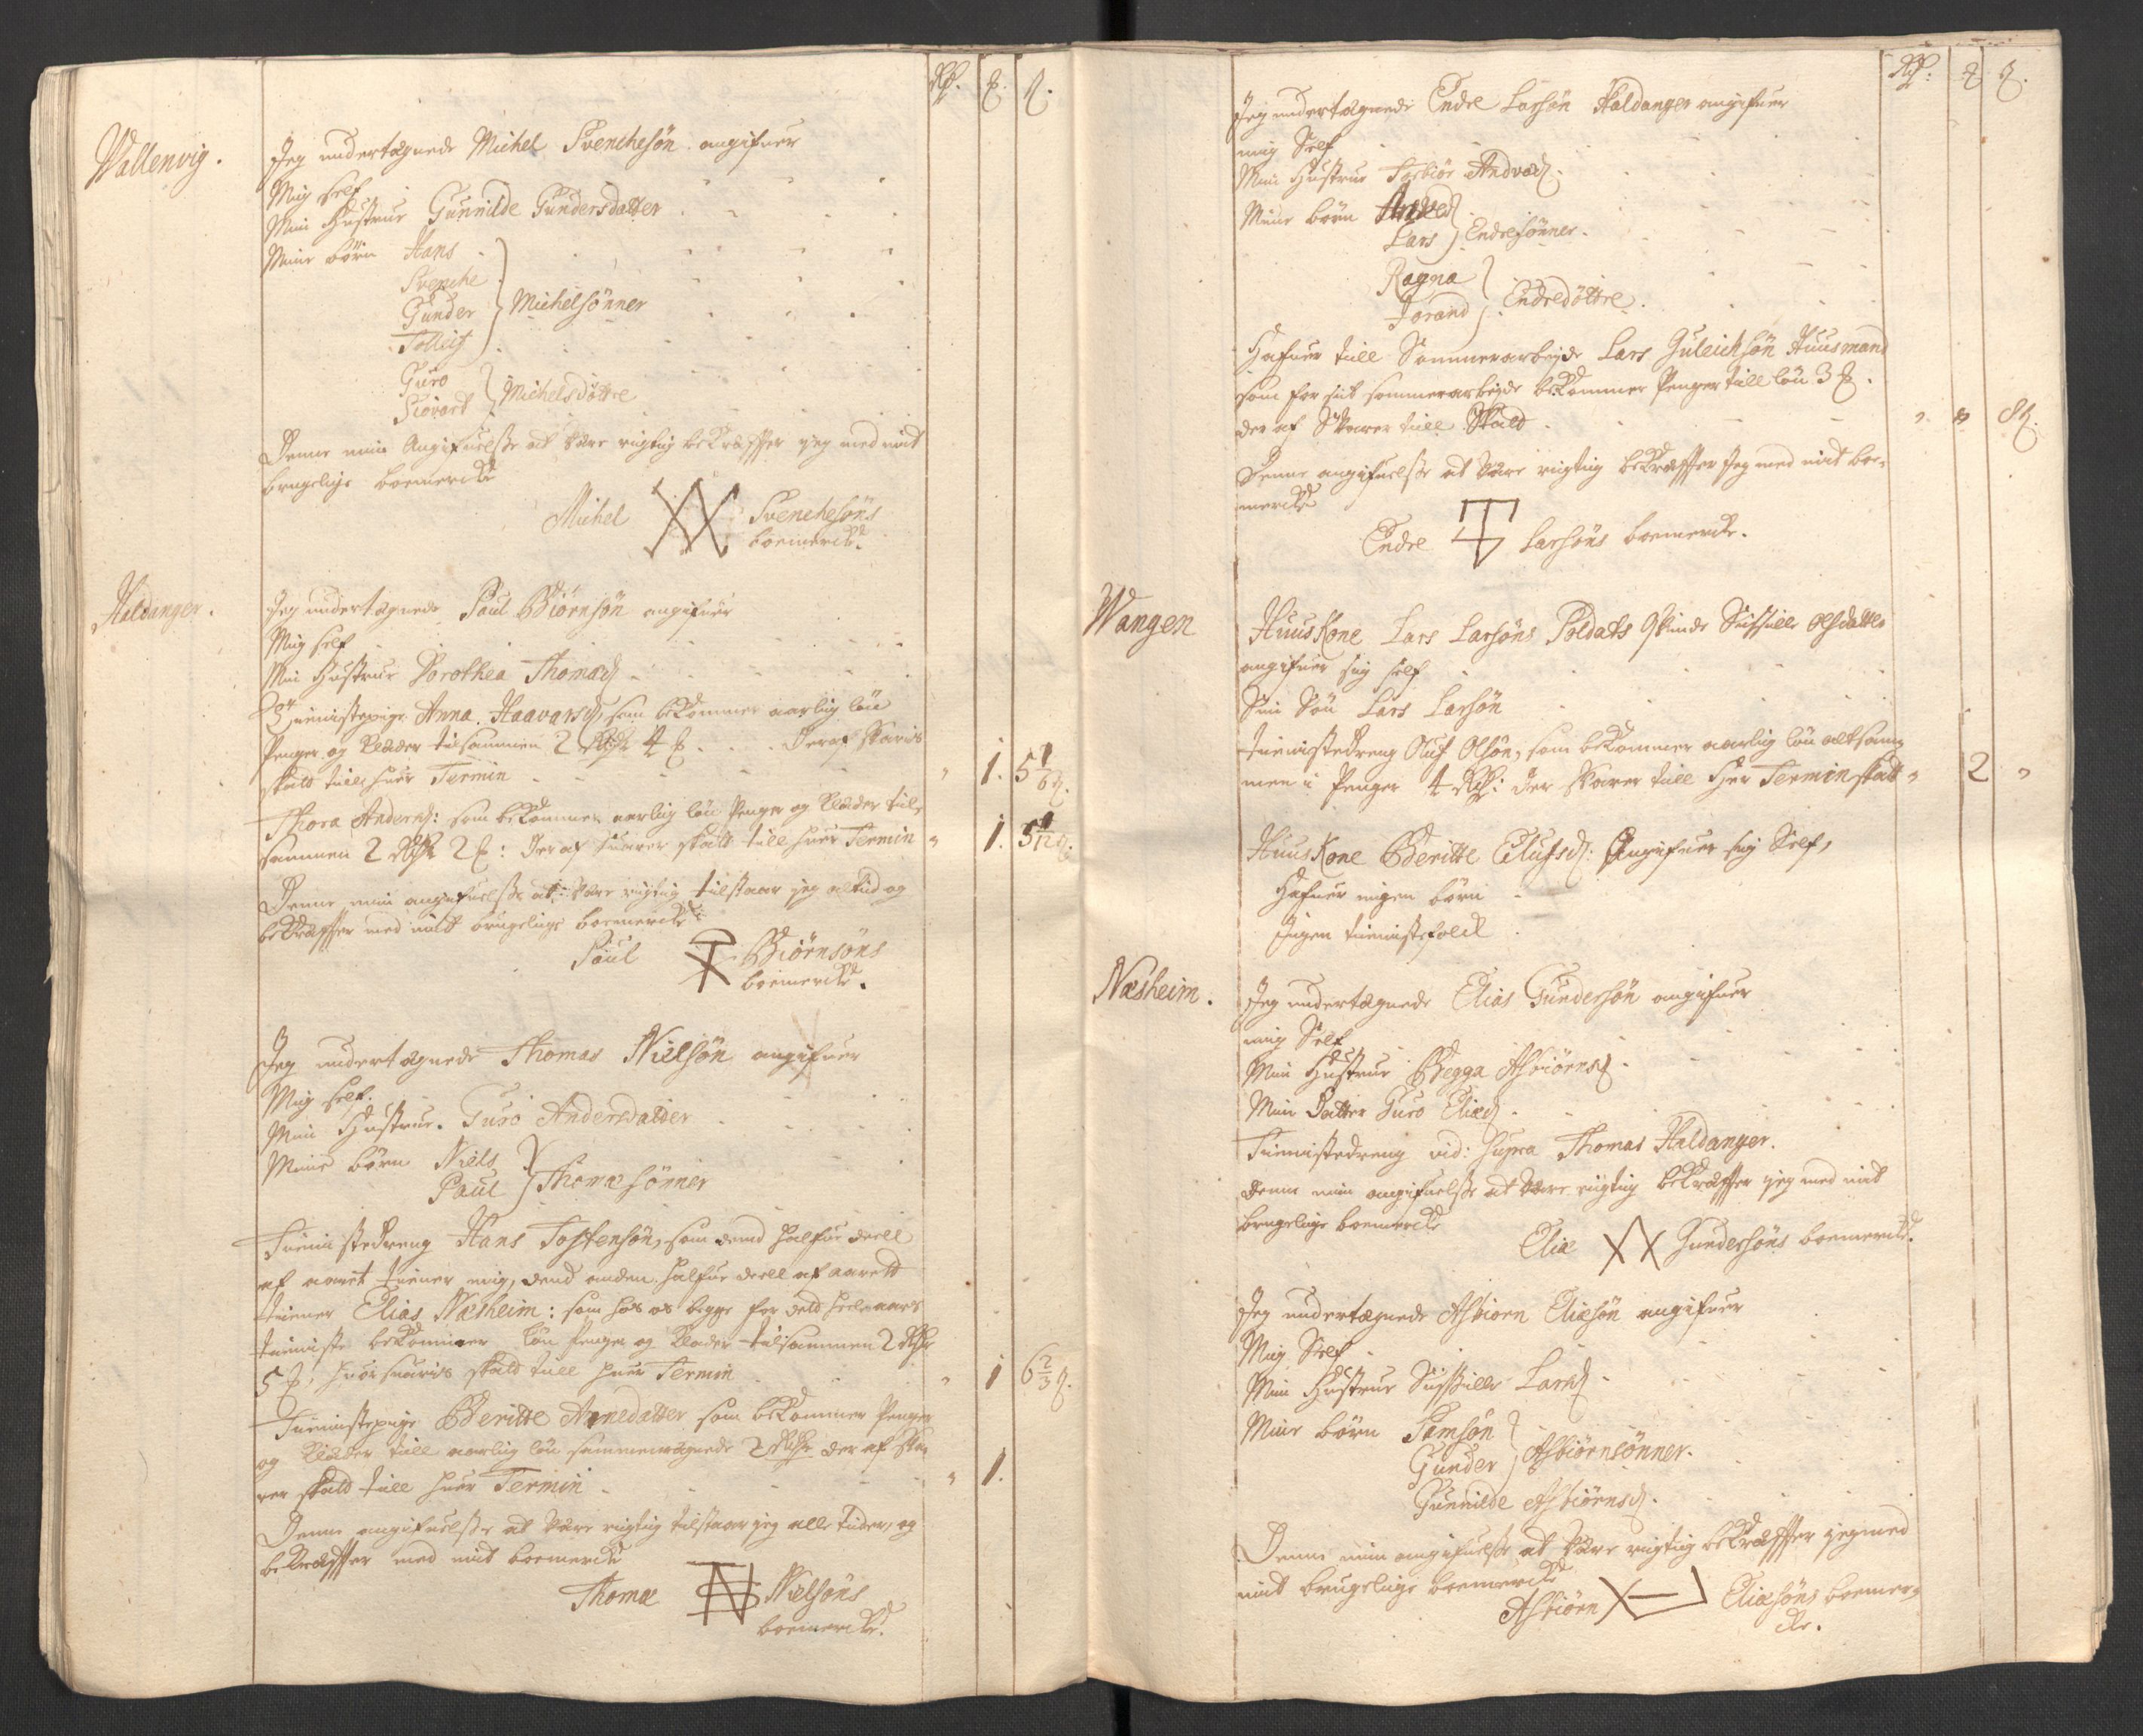 Rdr. ℳ. ß.
Wallenvig.
Jeg undertegnede Michel Svenchesøn angifuer
Mig self
Min Hustrue Gunnilde Gundersdatter
Mine børn Hans
Svenche
Gunder } Michelsønner
Tolleif
Guro
Siovart } Michelsdøttre
Denne min Angifuelsse at være rigtig bekræffter jeg med mit
brugelige boemercke
Michel Svenchesøns
boemercke.
Haldanger.
Jeg undertegnede Paul Biørnsøn angifuer
Mig self
Min Hustrue Dorothea Thomasd.
Tienistepige Anna Haavarsd, som bekommer aarlig løn
Penger og Klæder tilsammen 2 Rdr 4 ℳ. Deraf svaris
skatt till huer Termin " 1. 5 1/6 ß.
Thora Andersd: som bekommer aarlig løn Penger og Klæder til
sammen 2 Rdr 2 ℳ: Deraf suarer skatt till huer Termin " 1. 3 1/12 ß.
Denne min angifuelsse at være rigtig tilstaar jeg altid og
bekræffter med mit brugelige boemercke
Paul Biørnsøns
boemercke.
Jeg undertegnede Thomas Nielsøn angifuer
Mig self.
Min Hustrue. Guro Andersdatter
Mine børn Niels
Paul } Thomæsønner
Tienistedreng Hans Tostensøn, som dend halfue deell
af aaret tiener mig, dend anden halfue deell af aarett
tiener Elias Næsheim: som hos os begge for deld heele aars
tieniste bekommer løn Penger og Klæder tilsammen 2 Rdr
5 ℳ, huor suaris skatt till huer Termin " 1 6 2/3 ß.
Tienistepige Beritte Arnedatter som bekommer Penger
og Klæder till aarlig løn sammenregnede 2 Rdr der af sva
rer skatt till huer Termin " 1.
Denne angifuelsse at være rigtig tilstaar jeg alle tider, og
bekræffter med mit boemercke
Thomæ Nielsøns
boemercke.
Rdr: ℳ ß.
Jeg undertegnede Endre Larsøn Haldanger angifuer
mig Self
Min Hustrue Torbior Andved.
Mine børn Anved
Lars } Endresønner.
Ragna
Jorand } Endredøttre.
Hafuer till Sommerarbejde Lars Guleichsøn Huusmand
som for sit sommerarbejde bekommer Penger till løn 3 ℳ.
der af Svarer till Skatt " " 8 ß.
Denne angifuelsse at være rigtig bekræffter jeg med mit boe
mercke
Endre Larsøns boemercke.
Wangen
Huuskone Lars Larsøns Soldats Qvinde Sissille Olsdatter
angifuer sig self
Sin Søn Lars Larsøn
tienistedreng Oluf Olsøn, som bekommer aarlig løn altsam
men i Penger 4 Rdr: der svarer till huer Termin skatt " 2 "
Huuskone Beritte Olufsd: Angifuer sig Self,
Hafuer ingen børn
Ingen tienistefolck
Næsheim.
Jeg undertegnede Elias Gundersøn angifuer
mig Self
Min Hustrue Begga Asbiørnsd
Min Datter Guro Eliæd.
Tienistedreng vid: supra Thomas Haldanger.
Denne min angifuelsse at være rigtig bekræffter jeg med mit
brugelige boemercke
Eliæ Gundersøns boemercke.
Jeg undertegnede Asbiorn Eliæsøn angifuer
Mig Self
Min Hustrue Sissille Larsd
Mine børn Samsøn
Gunder } Asbiørnsønner.
Gunnilde Asbiørnsd.
Denne min angifuelsse at være rigtig bekræffter jeg med
mit brugelige boemercke
Asbiørn Eliæsøns boemer
cke.